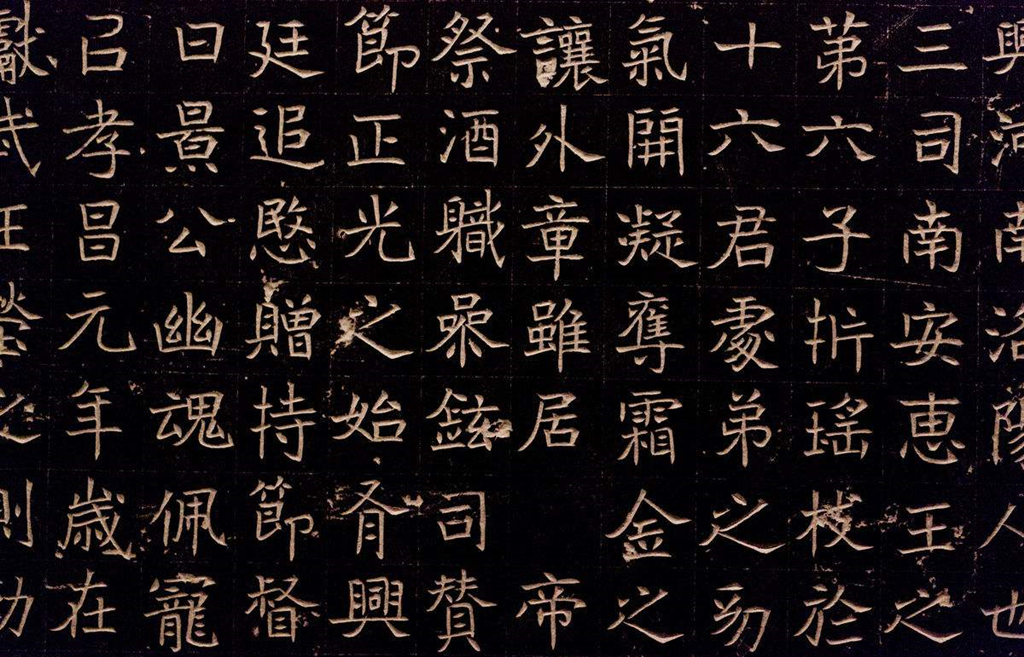 興河南洛陽人也
三司南安惠王之
第六子㭊瑶枝於
十六君處弟之幼
氣開凝奪霜金之
讓外章雖居 帝
祭酒職㬥鉉司賛
節正光之始肯興
廷追愍贈持節督
曰景公幽魂佩寵
己孝昌元年歲在
獻武王塋之側